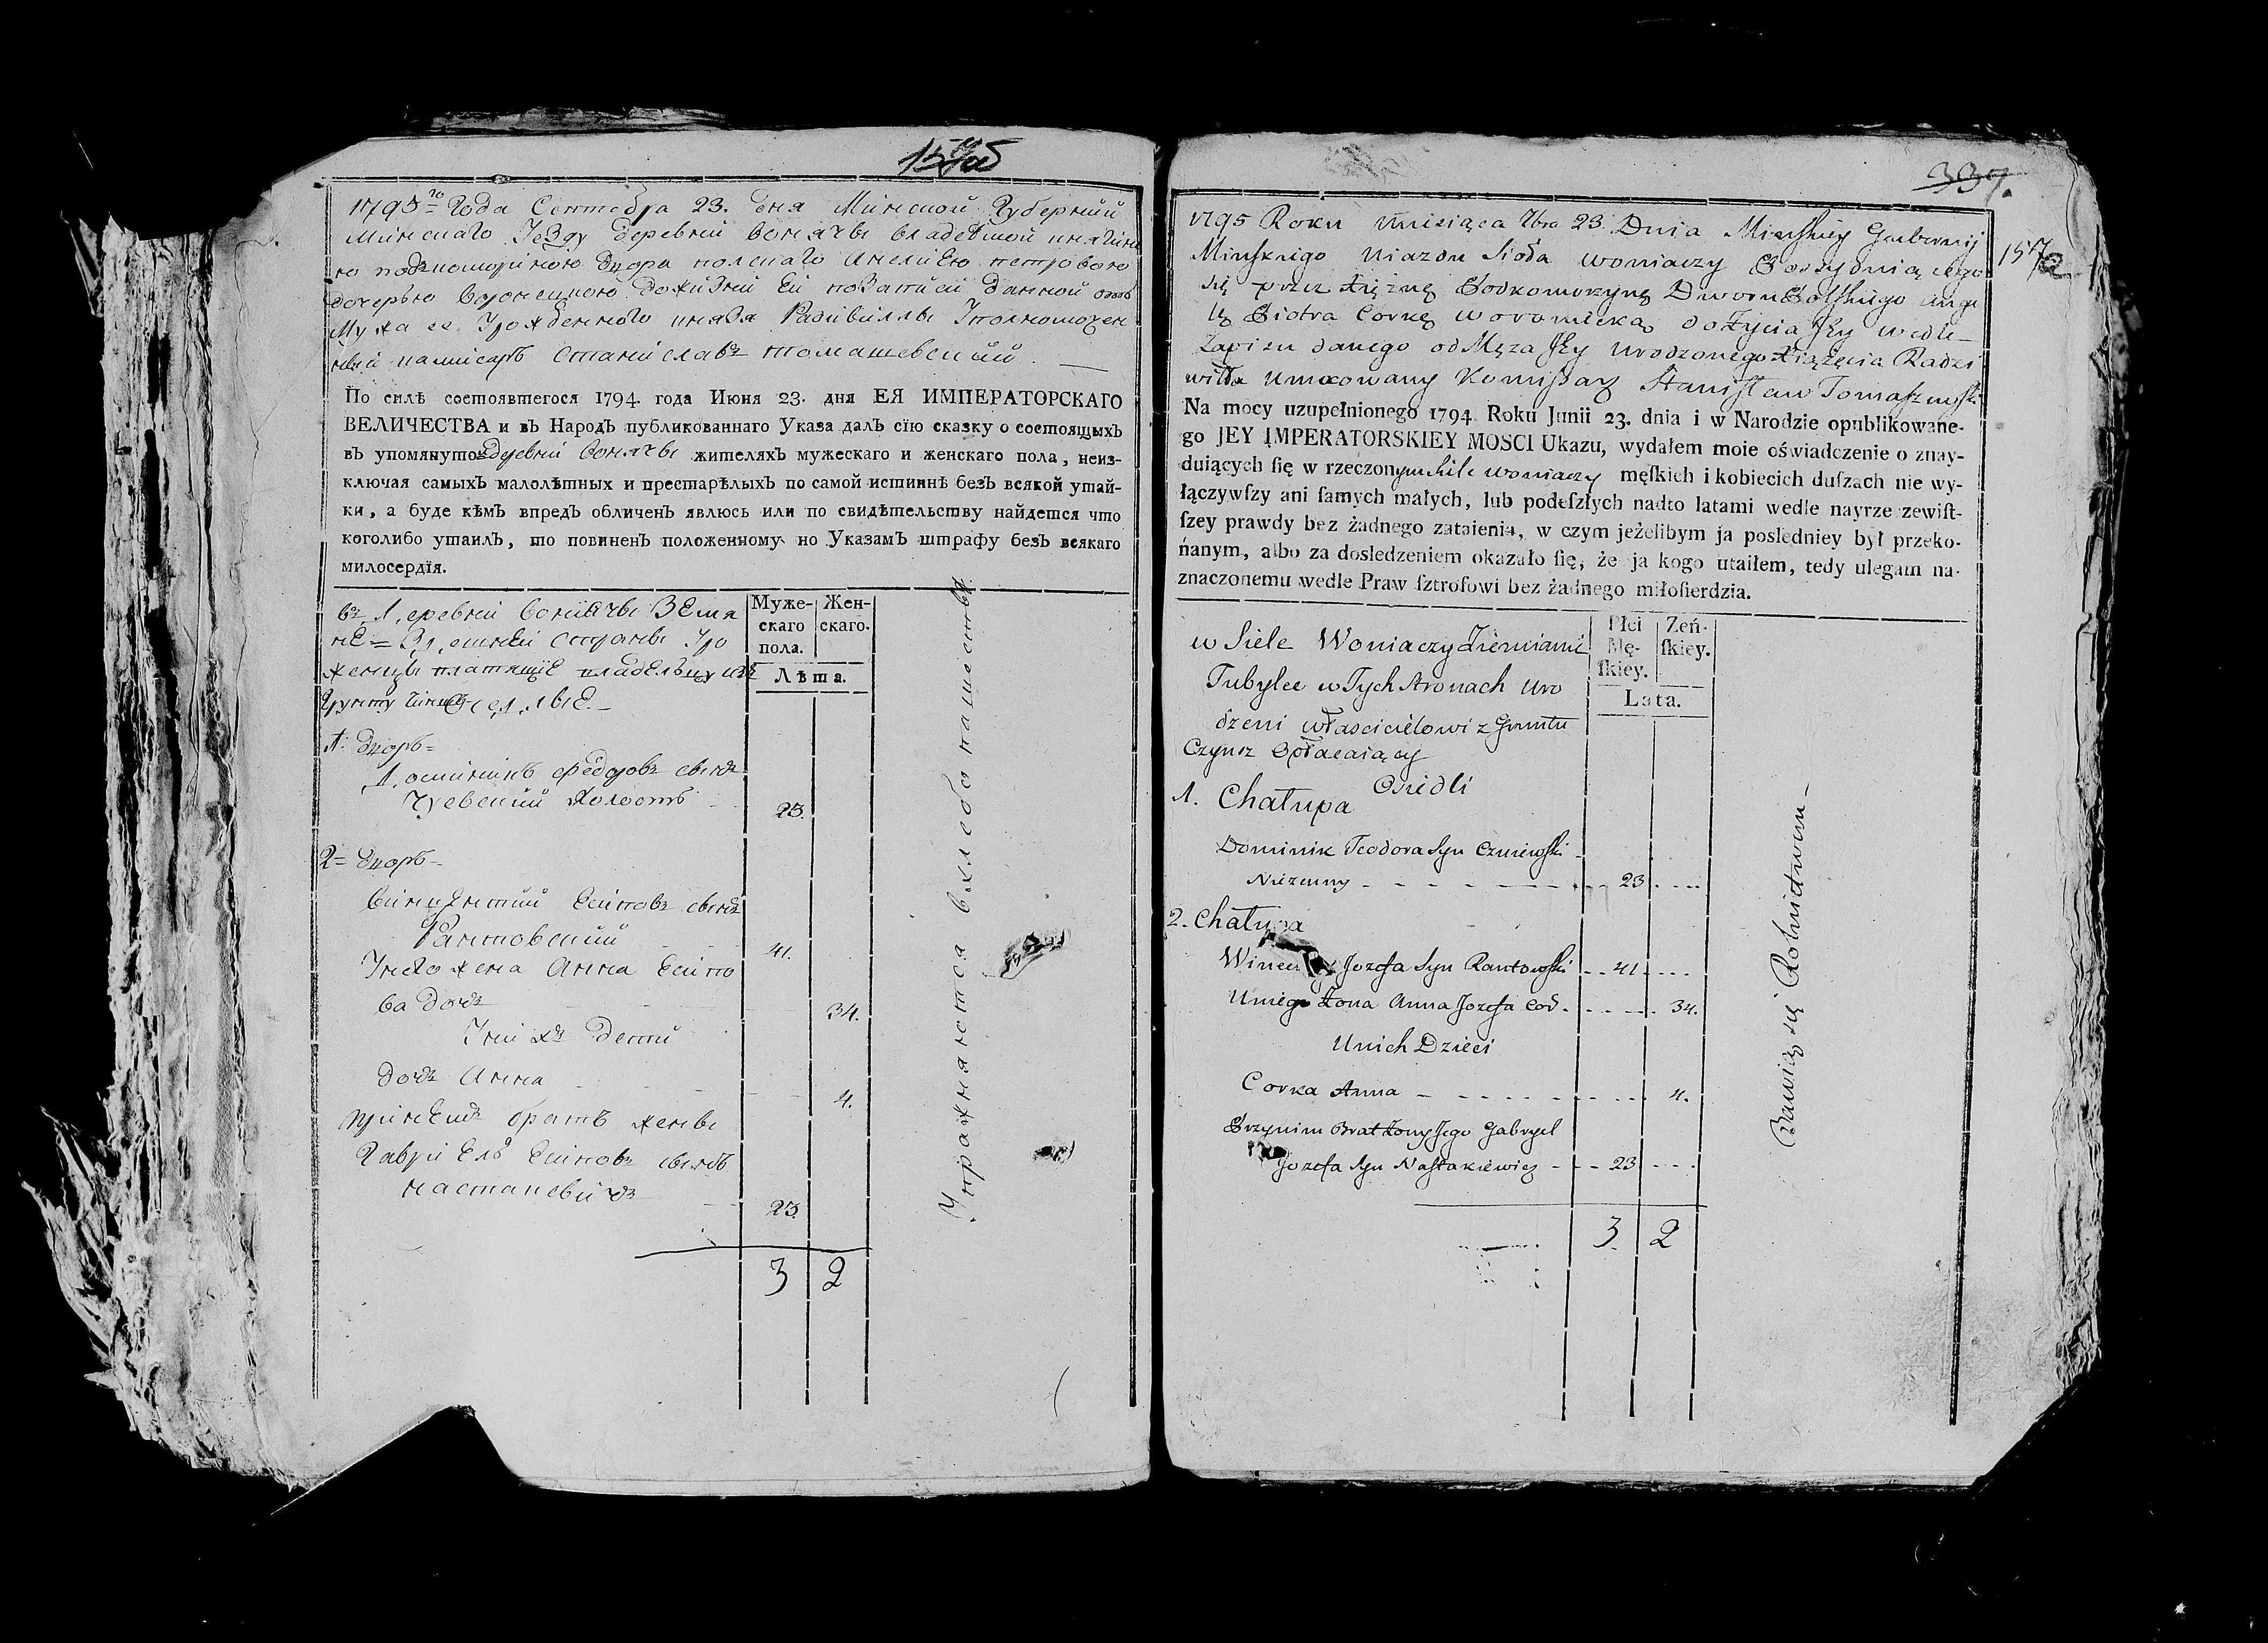 1795го Года Сентебра 23. дня Минской Губерний
Минскаго Уезду деревни Вонячы владеемой княгин
ею подкоморыною двора полскаго Анелиею петровою
дочерью Воронецкою
Мужа ее Урожденного князя Радивиллы Уполномочен
ный камисаръ Станиславъ томашевский
По силѣ состоявшегося 1794. года Июня 23. дня ЕЯ ИМПЕРАТОРСКАГО
ВЕЛИЧЕСТВА и въ Народъ публикованнаго Указа далъ сїю сказку о состоящыхъ
въ упомянутой деревни Вонячы жителяхъ мужескаго и женскаго пола, неиз-
ключая самыхъ малолѣтных и престарѣлыхъ по самой истиннѣ безъ всякой утай-
ки, а буде кѣмъ впредъ обличенъ явлюсь или по свидѣтельству найдется что
коголибо утаилъ, то повиненъ положенному по Указамъ штрафу безъ всякаго
милосердїя.
въ деревни Вонячы Земя
не здешней стороны Уро
женцы платящие владельцу изъ
грунту чиншъ
Муже-
скаго
пола.
Жен-
скаго.
Лѣта.
1: дворъ
Доминикъ Федоровъ сынъ
Чуевский Холостъ 23.
2 дворъ
Винцентий Есиповъ сынъ
Рантовский 41.
Унего жена Анна Есипо
ва дочъ 34.
Уних дети
дочъ Анна 4.
при нем братъ жены
Гавриелъ Есиповъ сынъ
настакевичъ 23.
3 2
Упражняются вхлебопашестве
337.
157
1795 Roku Miesiąca 7bra 23. Dnia Minskiey Gubernij
Minskiego Uiazdu Sioła Woniaczy Possydniącego
się przez Xiężnę Podkomorzynę Dworu Polskiego Ange
lę Piotra Corkę Woroniecką do Życia Jey wedle
Zapisu danego od Męża Jey Urodzonego Xiążęcia Radzi
wiłła Umocowany Komissarz Stanisław Tomaszewski
Na mocy uzupełnionego 1794 Roku Junii 23. dnia i w Narodzie opublikowane-
go JEY IMPERATORSKIEY MOSCI Ukazu, wydałem moie oświadczenie o znay-
duiących ſię w rzeczonym Siele Woniaczy męſkich i kobiecich duſzach nie wy-
łączywſzy ani ſamych małych, lub podeſzłych nadto latami wedle nayrze zewiſt-
ſzey prawdy bez żadnego zataienia, w czym jeżelibym ja posledniey był przeko-
ńanym, albo za dosledzeniem okazało ſię, że ja kogo utaiłem, tedy ulegam na-
znaczonemu wedle Praw ſztrofowi bez żadnego miłoſierdzia.
w Siele Woniaczy Ziemianie
Tubylce w Tych Stronach Uro
dzeni właścicielowi z Gruntu
Czynsz Opłacaiący
Osiedli
Płci
Mę-
ſkiey.
Zeń-
ſkiey.
Lata.
1. Chałupa
Dominik Teodora Syn Czuiewski
Nieżenny 23
2. Chałupa
Wincenty Jozefa Syn Rantowski 41
Uniego Żona Anna Jozefa Cor. 34.
Unich Dzieci
Corka Anna 4.
Przynim Brat Żony Jego Gabryel
Jozefa Syn Nastakiewicz 23
3. 2
Bawią się Rolnictwem